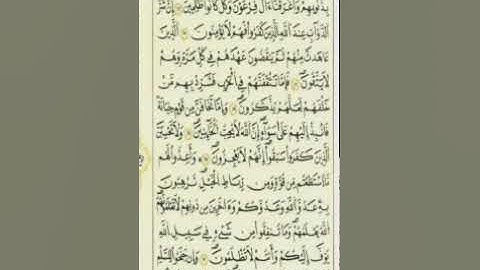 بِذُنُوبِهِمْ وَأَغْرَقْنَآ ءَالَ فِرْعَوْنَ وَكُلٌّ كَانُوا۟ ظَٰلِمِينَ إِنَّ شَرَّ
ٱلدَّوَآبِّ عِندَ ٱللَّهِ ٱلَّذِينَ كَفَرُوا۟ فَهُمْ لَا يُؤْمِنُونَ ٱلَّذِينَ
عَٰهَدتَّ مِنْهُمْ ثُمَّ يَنقُضُونَ عَهْدَهُمْ فِى كُلِّ مَرَّةٍ وَهُمْ
لَا يَتَّقُونَ فَإِمَّا تَثْقَفَنَّهُمْ فِى ٱلْحَرْبِ فَشَرِّدْ بِهِم مَّنْ
خَلْفَهُمْ لَعَلَّهُمْ يَذَّكَّرُونَ وَإِمَّا تَخَافَنَّ مِن قَوْمٍ خِيَانَةً
فَٱنۢبِذْ إِلَيْهِمْ عَلَىٰ سَوَآءٍ إِنَّ ٱللَّهَ لَا يُحِبُّ ٱلْخَآئِنِينَ وَلَا يَحْسَبَنَّ
ٱلَّذِينَ كَفَرُوا۟ سَبَقُوٓا۟ إِنَّهُمْ لَا يُعْجِزُونَ وَأَعِدُّوا۟ لَهُم
مَّا ٱسْتَطَعْتُم مِّن قُوَّةٍ وَمِن رِّبَاطِ ٱلْخَيْلِ تُرْهِبُونَ
بِهِۦ عَدُوَّ ٱللَّهِ وَعَدُوَّكُمْ وَءَاخَرِينَ مِن دُونِهِمْ لَا تَعْلَمُونَهُمُ
ٱللَّهُ يَعْلَمُهُمْ وَمَا تُنفِقُوا۟ مِن شَىْءٍ فِى سَبِيلِ ٱللَّهِ
يُوَفَّ إِلَيْكُمْ وَأَنتُمْ لَا تُظْلَمُونَ وَإِن جَنَحُوا۟ لِلسَّلْمِ